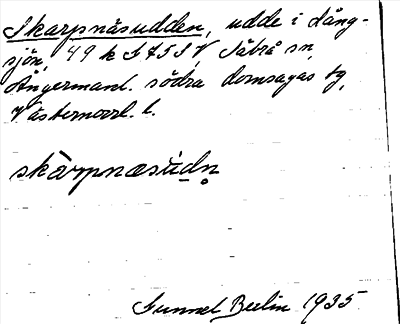 Skarpnäsudden, udde i Lång-
sjön, 49 k S 75 S, V Säbrå sn,
Ångermanl. södra domsagas tg,
Västernorrl. l.
skàrpnæsúdn̥
Gunnel Beelin 1935